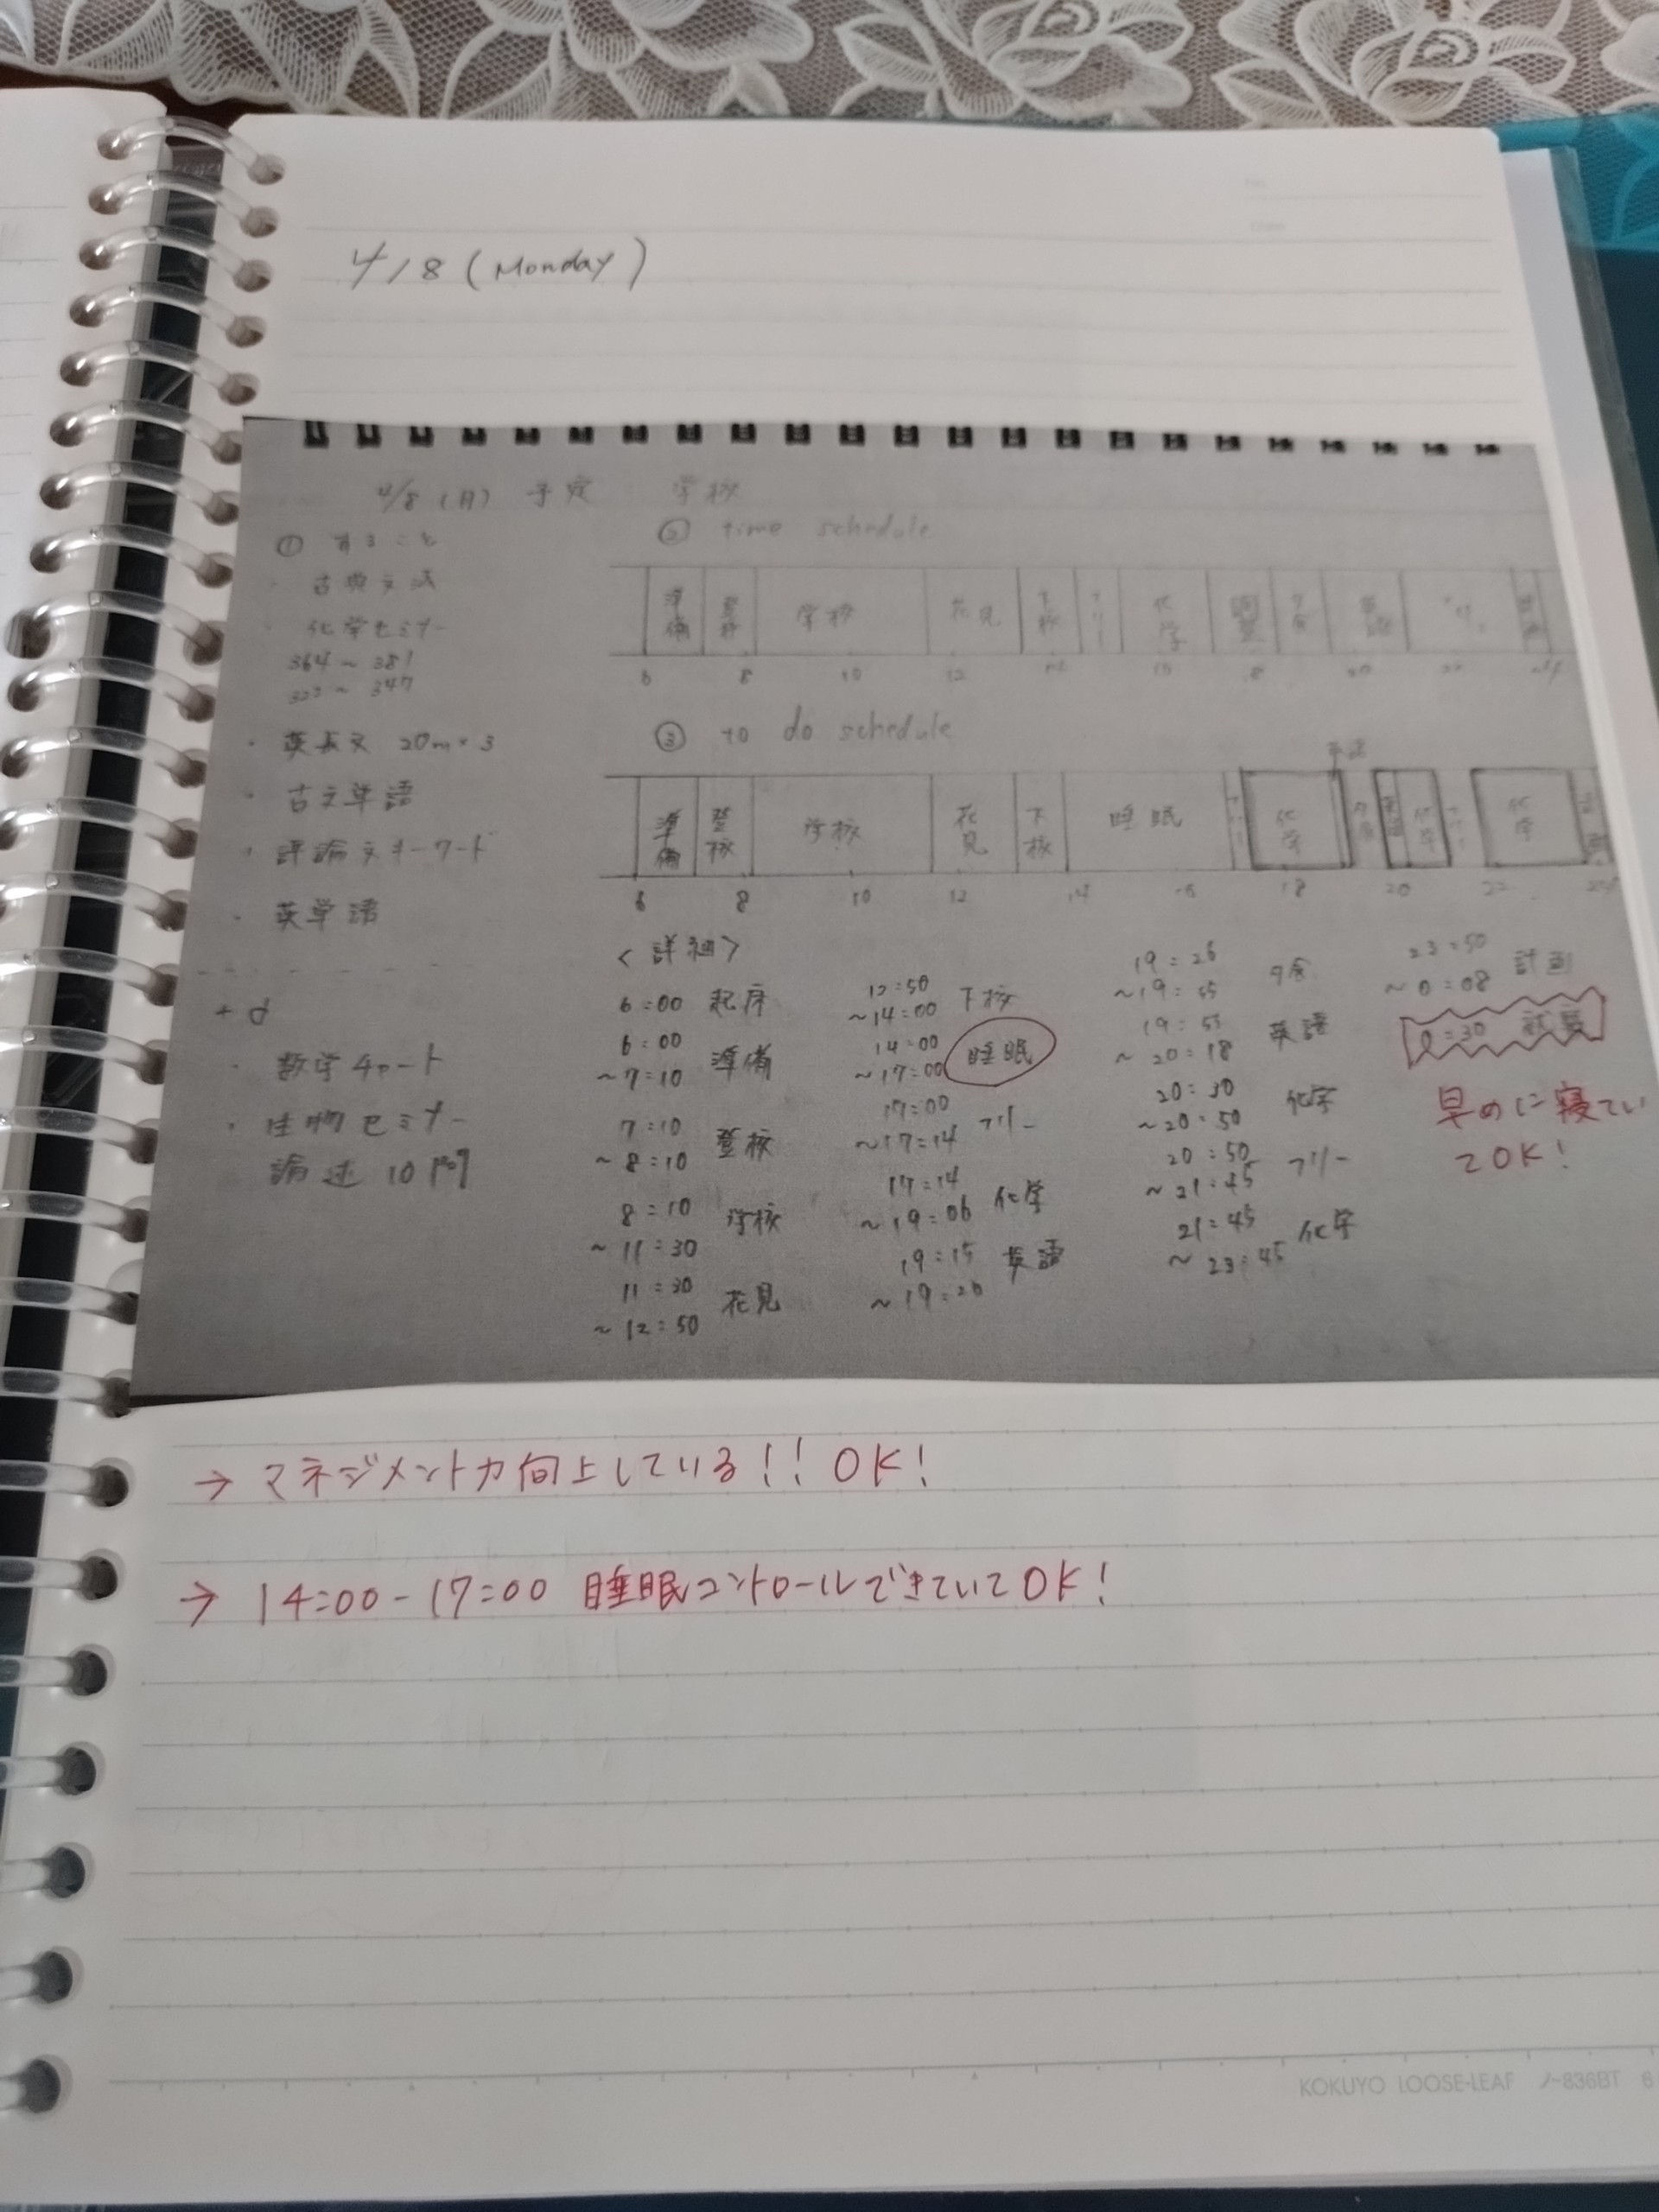 4/8 (Monday)
4/8 (月) 予定 学校
① すること
・古典文法
・化学セミナー
364 ~ 381
~ 347
・英長文 20m × 3
・古文単語
・評論文キーワード
・英単語
+ d
・数学チャート
・生物セミナー
論述 10問
② time schedule
準備 登校 学校 花見 下校 フリー 化学 夕食 英語
6 8 10 12 18 20 22 24
③ to do schedule
準備 登校 学校 花見 下校 睡眠 フリー 化学 夕食 英語 化学 フリー 化学
6 8 10 12 14 16 18 20 22 24
<詳細>
6:00 起床
6:00
~7:10 準備
7:10
~8:10 登校
8:10
~11:30 学校
11:30
~12:50 花見
12:50
~14:00 下校
14:00
~17:00 睡眠
17:00
~17:14 フリー
17:14
~19:06 化学
19:15
~19:20 英語
19:26
~19:55 夕食
19:55
~20:18 英語
20:30
~20:50 化学
20:50
~21:45 フリー
21:45
~23:45 化学
23:50
~0:08 計画
0:30 就寝
早めに寝てい
てOK!
→ マネジメント力向上している!! OK!
→ 14:00-17:00 睡眠コントロールできていてOK!
KOKUYO LOOSE-LEAF ノ-836BT 6